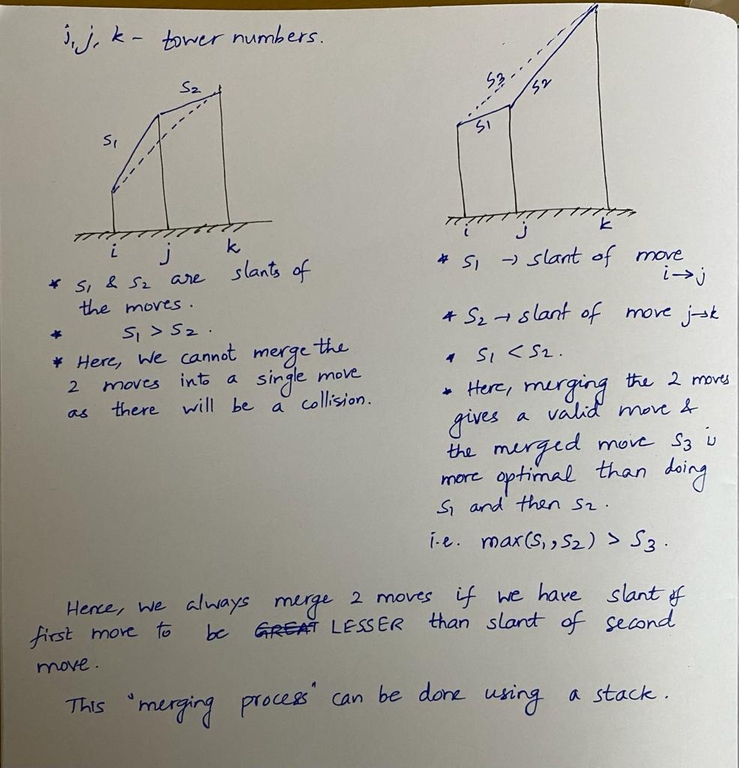 i, j, k - tower numbers.
S1
S2
i
j
k
* S1 & S2 are slants of
the moves.
* S1 > S2.
* Here, we cannot merge the
2 moves into a single move
as there will be a collision.
S3
S2
S1
i
j
k
* S1 → slant of move
i→j
* S2 → slant of move j→k
* S1 < S2.
* Here, merging the 2 moves
gives a valid move &
the merged move S3 is
more optimal than doing
S1 and then S2.
i.e. max(S1, S2) > S3.
Hence, we always merge 2 moves if we have slant of
first move to be GREAT LESSER than slant of second
move.
This "merging process" can be done using a stack.